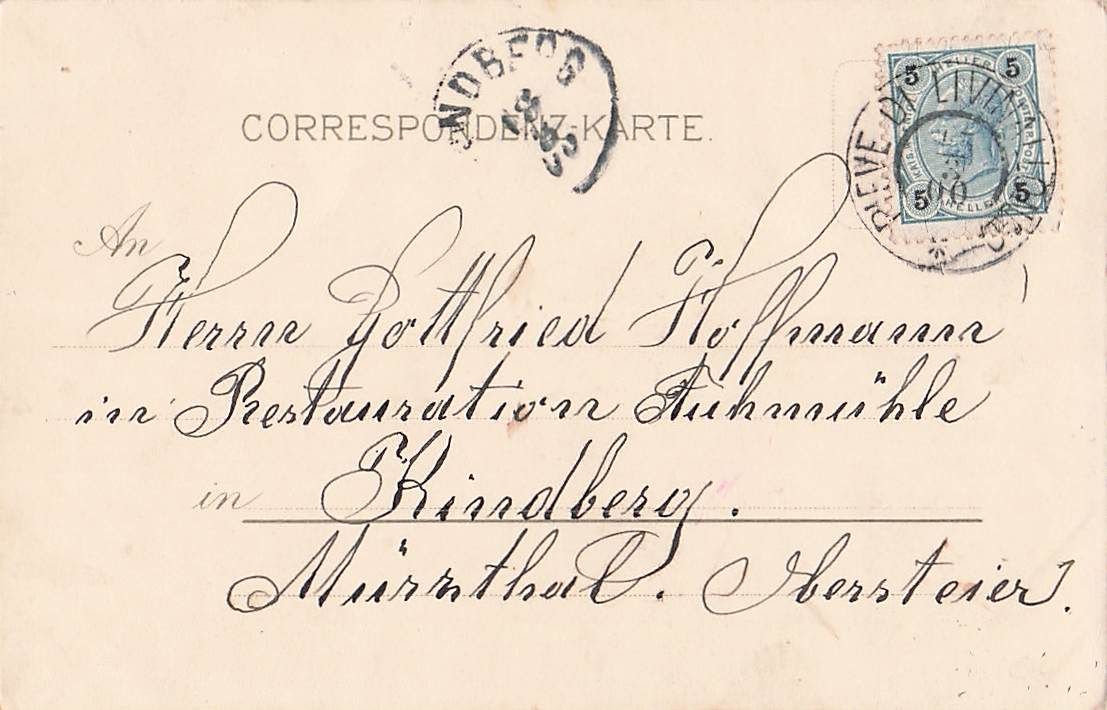 CORRESPONDENZ-KARTE.
NDBERG
PIEVE DI LIVINALLONGO
00
5 5
5 5
An
Herrn Gottfried Hoffmann
in Restauration Fuhmühle
in Kindberg.
Mürzthal. Obersteier.